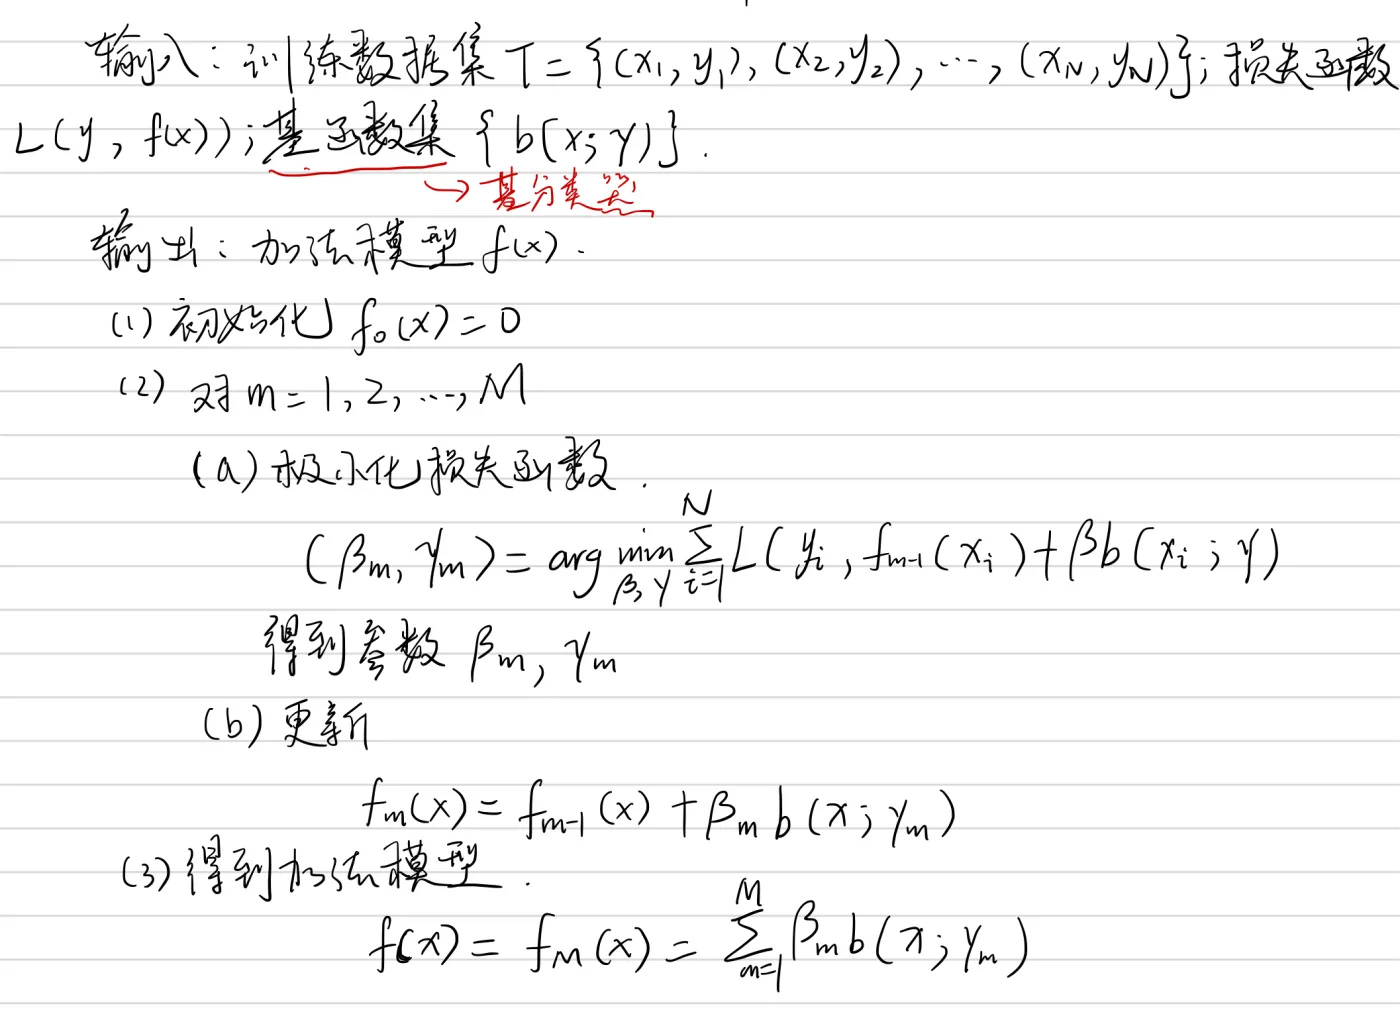 输入：训练数据集 T={(x₁,y₁),(x₂,y₂),…,(x_N,y_N)}；损失函数
L(y,f(x))；基函数集 {b(x;γ)}.
→ 基分类器
输出：加法模型 f(x).
(1) 初始化 f₀(x)=0
(2) 对 m=1,2,…,M
(a) 极小化损失函数.
(β_m,γ_m)=arg min_{β,γ} ∑_{i=1}^{N} L(y_i,f_{m-1}(x_i)+βb(x_i;γ)
得到参数 β_m,γ_m
(b) 更新
f_m(x)=f_{m-1}(x)+β_m b(x;γ_m)
(3) 得到加法模型.
f(x)=f_M(x)=∑_{m=1}^{M} β_m b(x;γ_m)